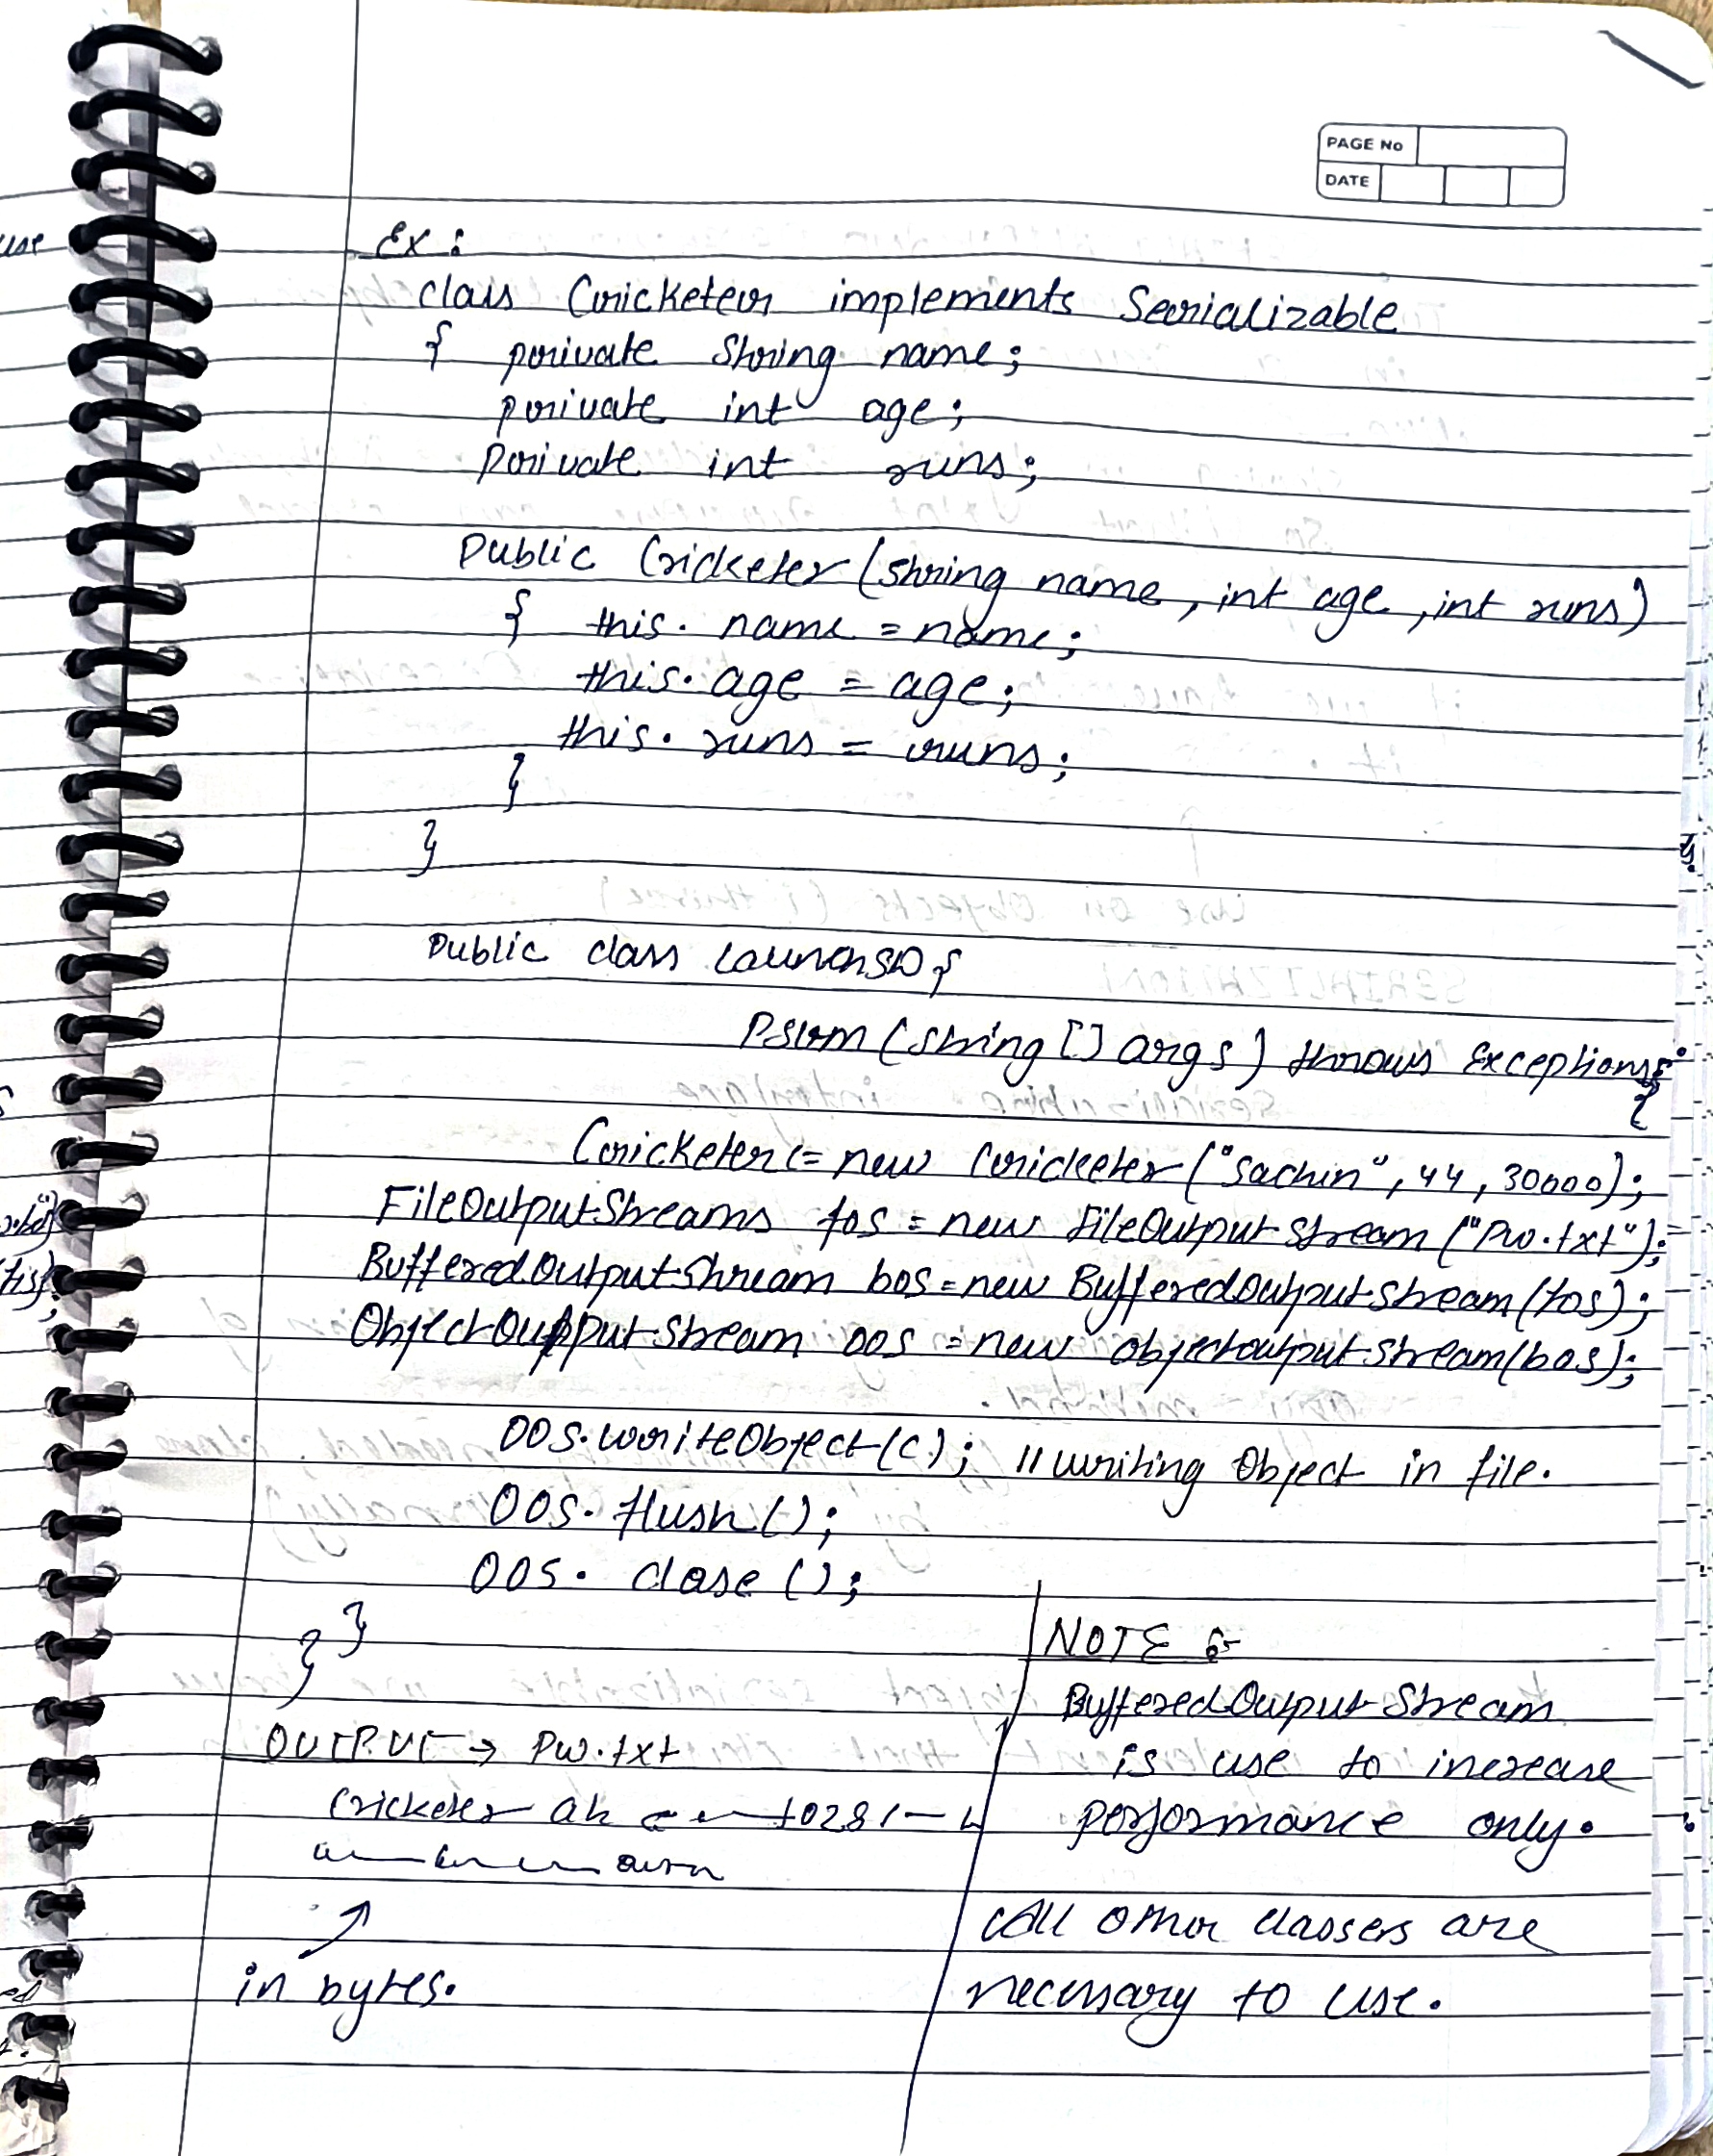 PAGE No
DATE
use
Ex :
class Cricketer implements Serializable
{ private String name;
private int age;
Private int runs;
Public Cricketer (String name, int age, int runs)
{ this. name = name;
this. age = age;
this. runs = runs;
}
}
Public class LaunchSD {
Psvm (String [] args) throws Exceptions
{
Cricketer c= new Cricketer ("Sachin", 44, 30000);
FileOutputStreams fos = new FileOutputStream ("Pw.txt");
BufferedOutputStream bos = new BufferedOutputStream (fos);
ObjectOutputStream oos = new objectoutputStream(bos);
OOS. writeObject (c); // writing Object in file.
OOS. flush ();
OOS. close ();
}
}
OUTPUT → Pw.txt
Cricketer
in bytes.
NOTE :-
BufferedOutputStream
is use to increase
performance only.
All other classers are
necessary to use.